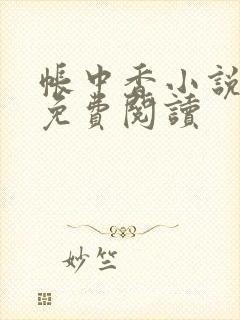 帳中香小說
免費閱讀
妙竺